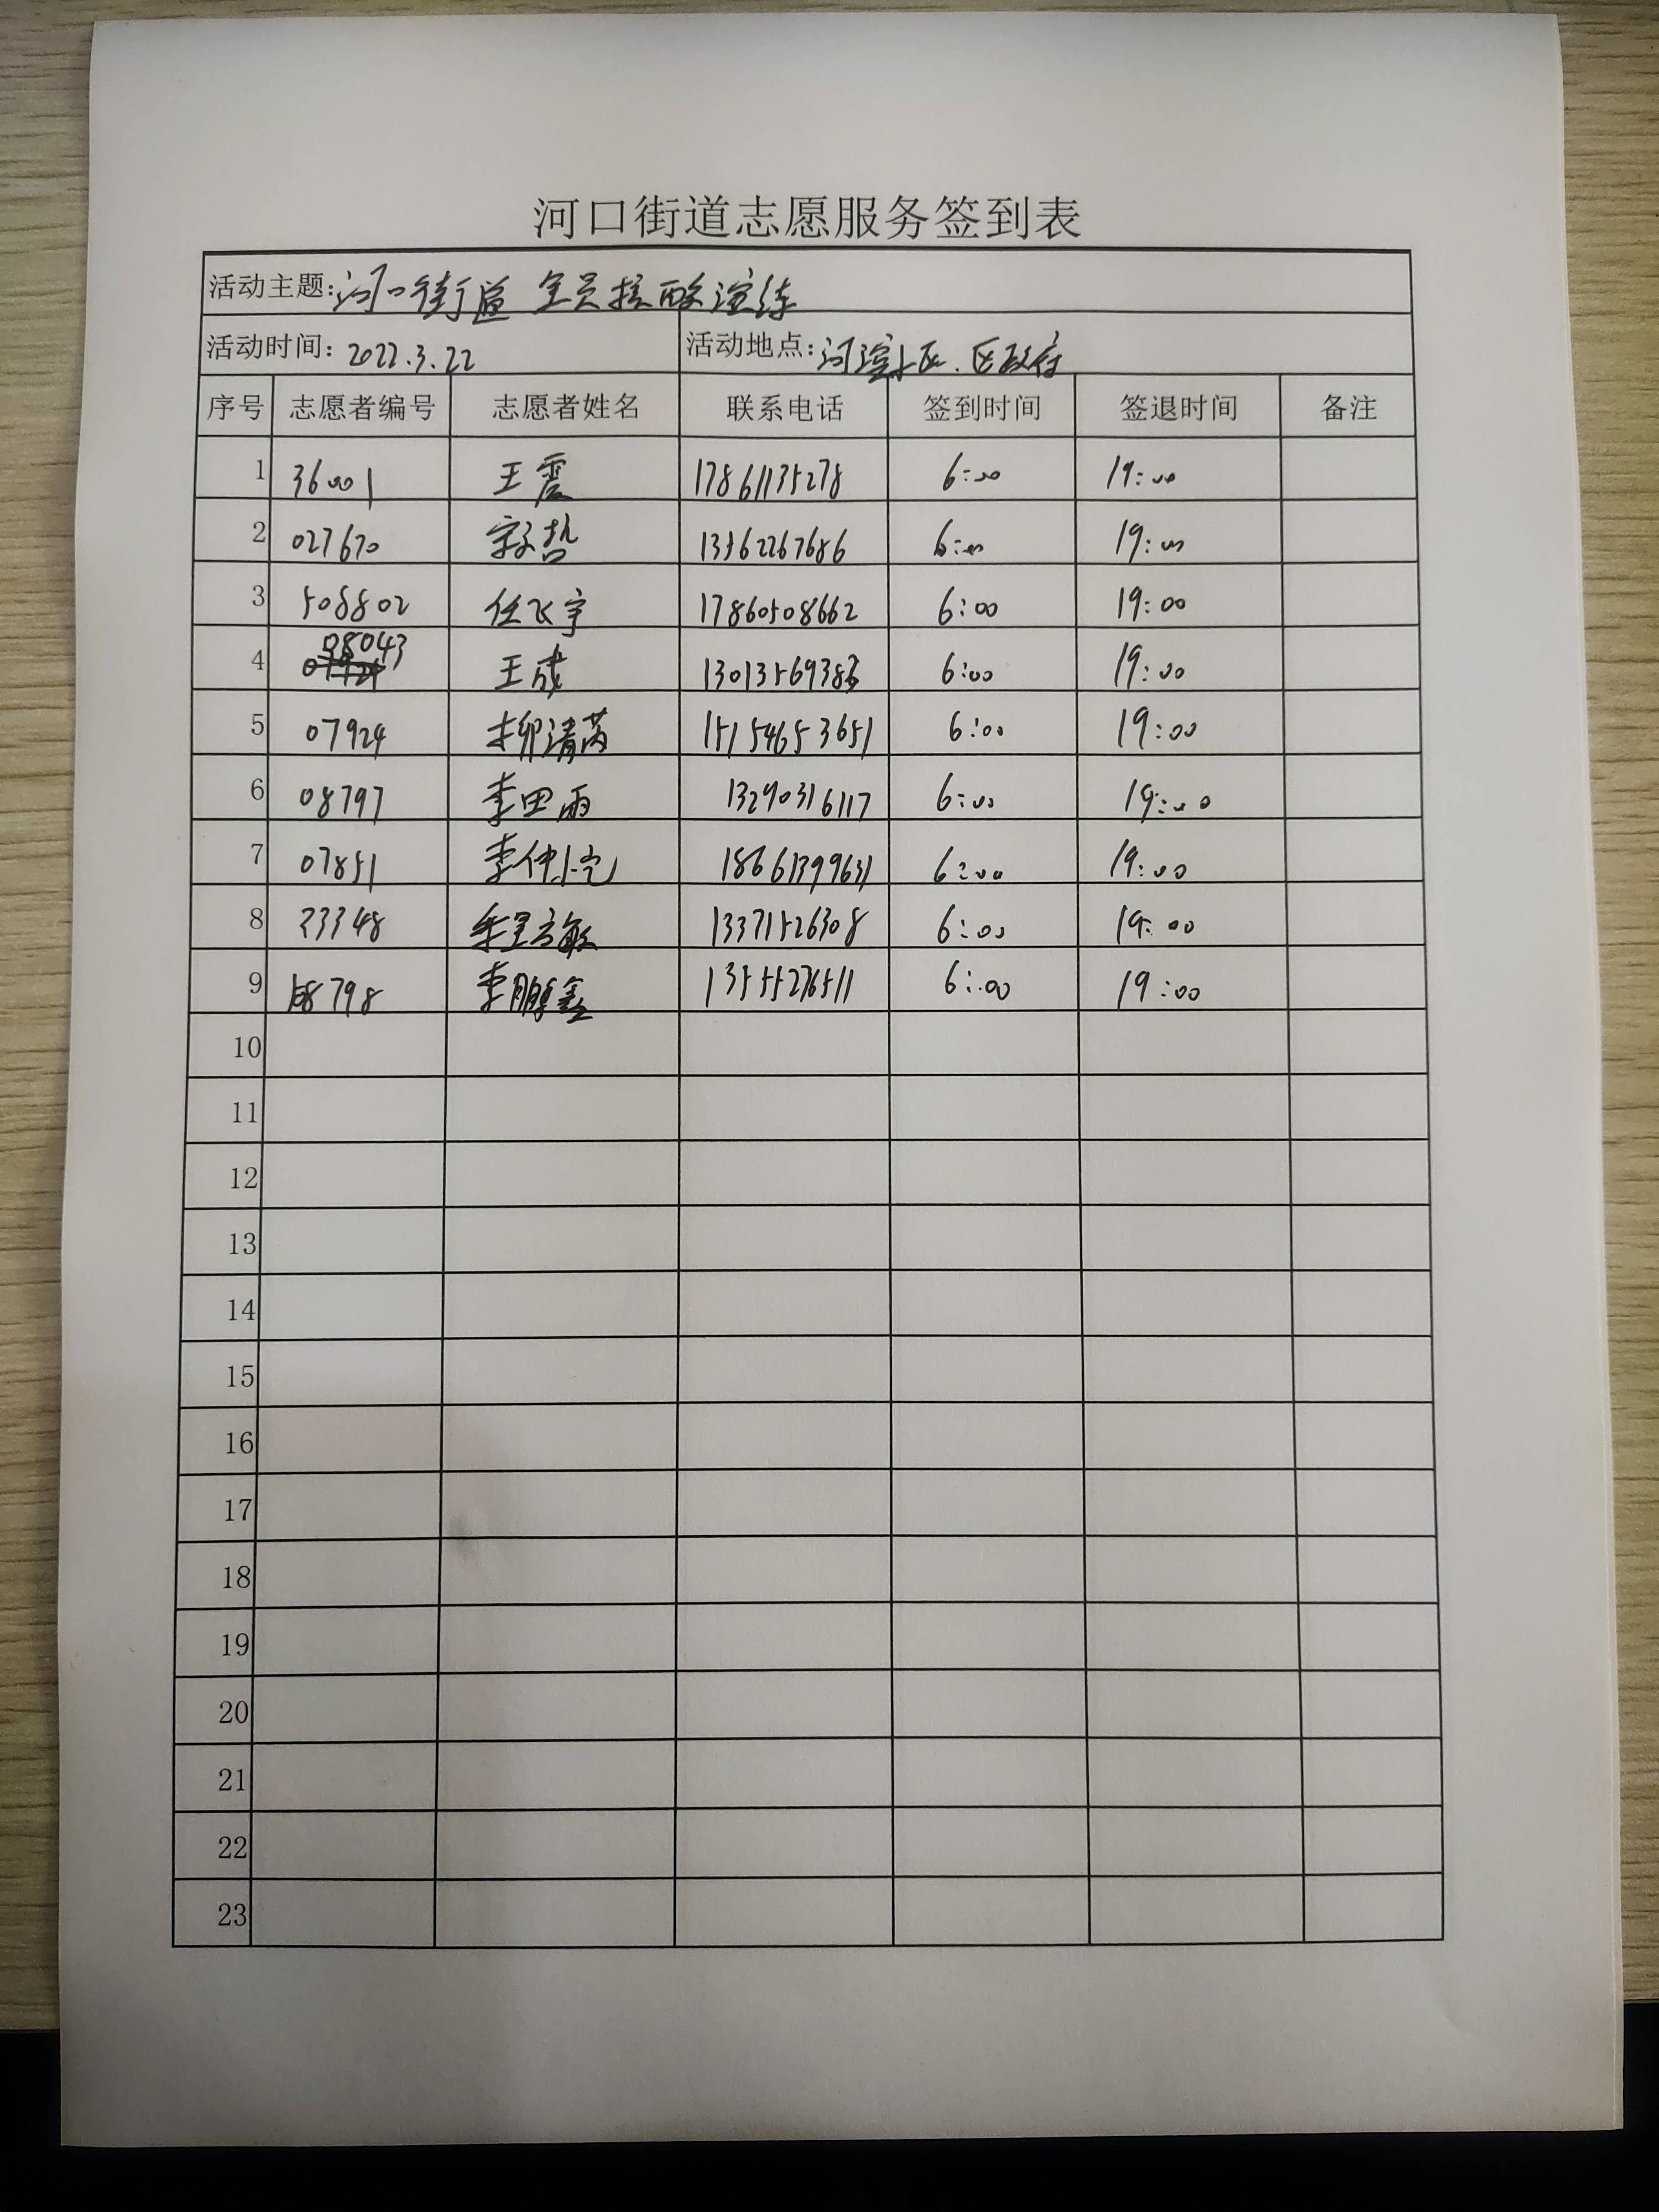 河口街道志愿服务签到表
活动主题:河口街道 全员核酸演练
活动时间: 2022.3.22 活动地点:河滨小区、区政府
序号 志愿者编号 志愿者姓名 联系电话 签到时间 签退时间 备注
1 36001 王震 17861135278 6:00 19:00
2 027670 13562267686 6:00 19:00
3 508802 任飞宇 17860508662 6:00 19:00
4 08043 王成 6:00 19:00
5 07924 柳清芮 15154653651 6:00 19:00
6 08797 李田雨 13290316117 6:00 19:00
7 07851 18661399631 6:00 19:00
8 23348 13371526308 6:00 19:00
9 李鹏鑫 13555276511 6:00 19:00
10
11
12
13
14
15
16
17
18
19
20
21
22
23